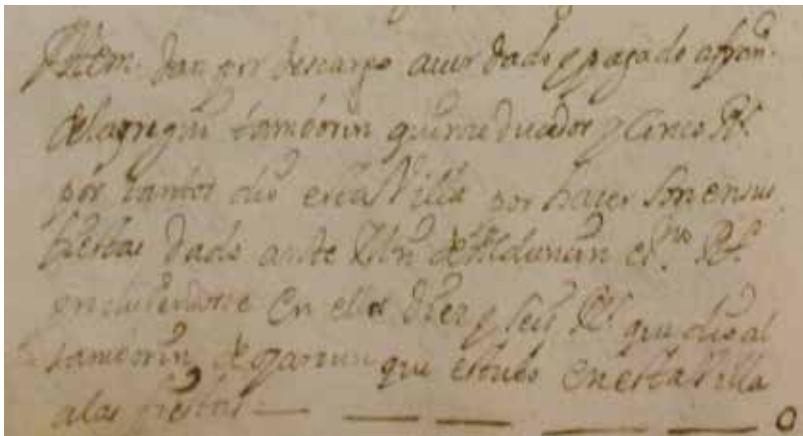 Yttem. dan por descargo auer dado y pagado a fran.co
tamborin quinze ducados y cinco Rs
por tantos dio esta Villa por hacer son en sus
fiestas dado ante el ss.no Rl
encluiendose en ellos diez y seis Rs que dio al
tamborin de oyarzun que estubo en esta Villa
a las fiestas